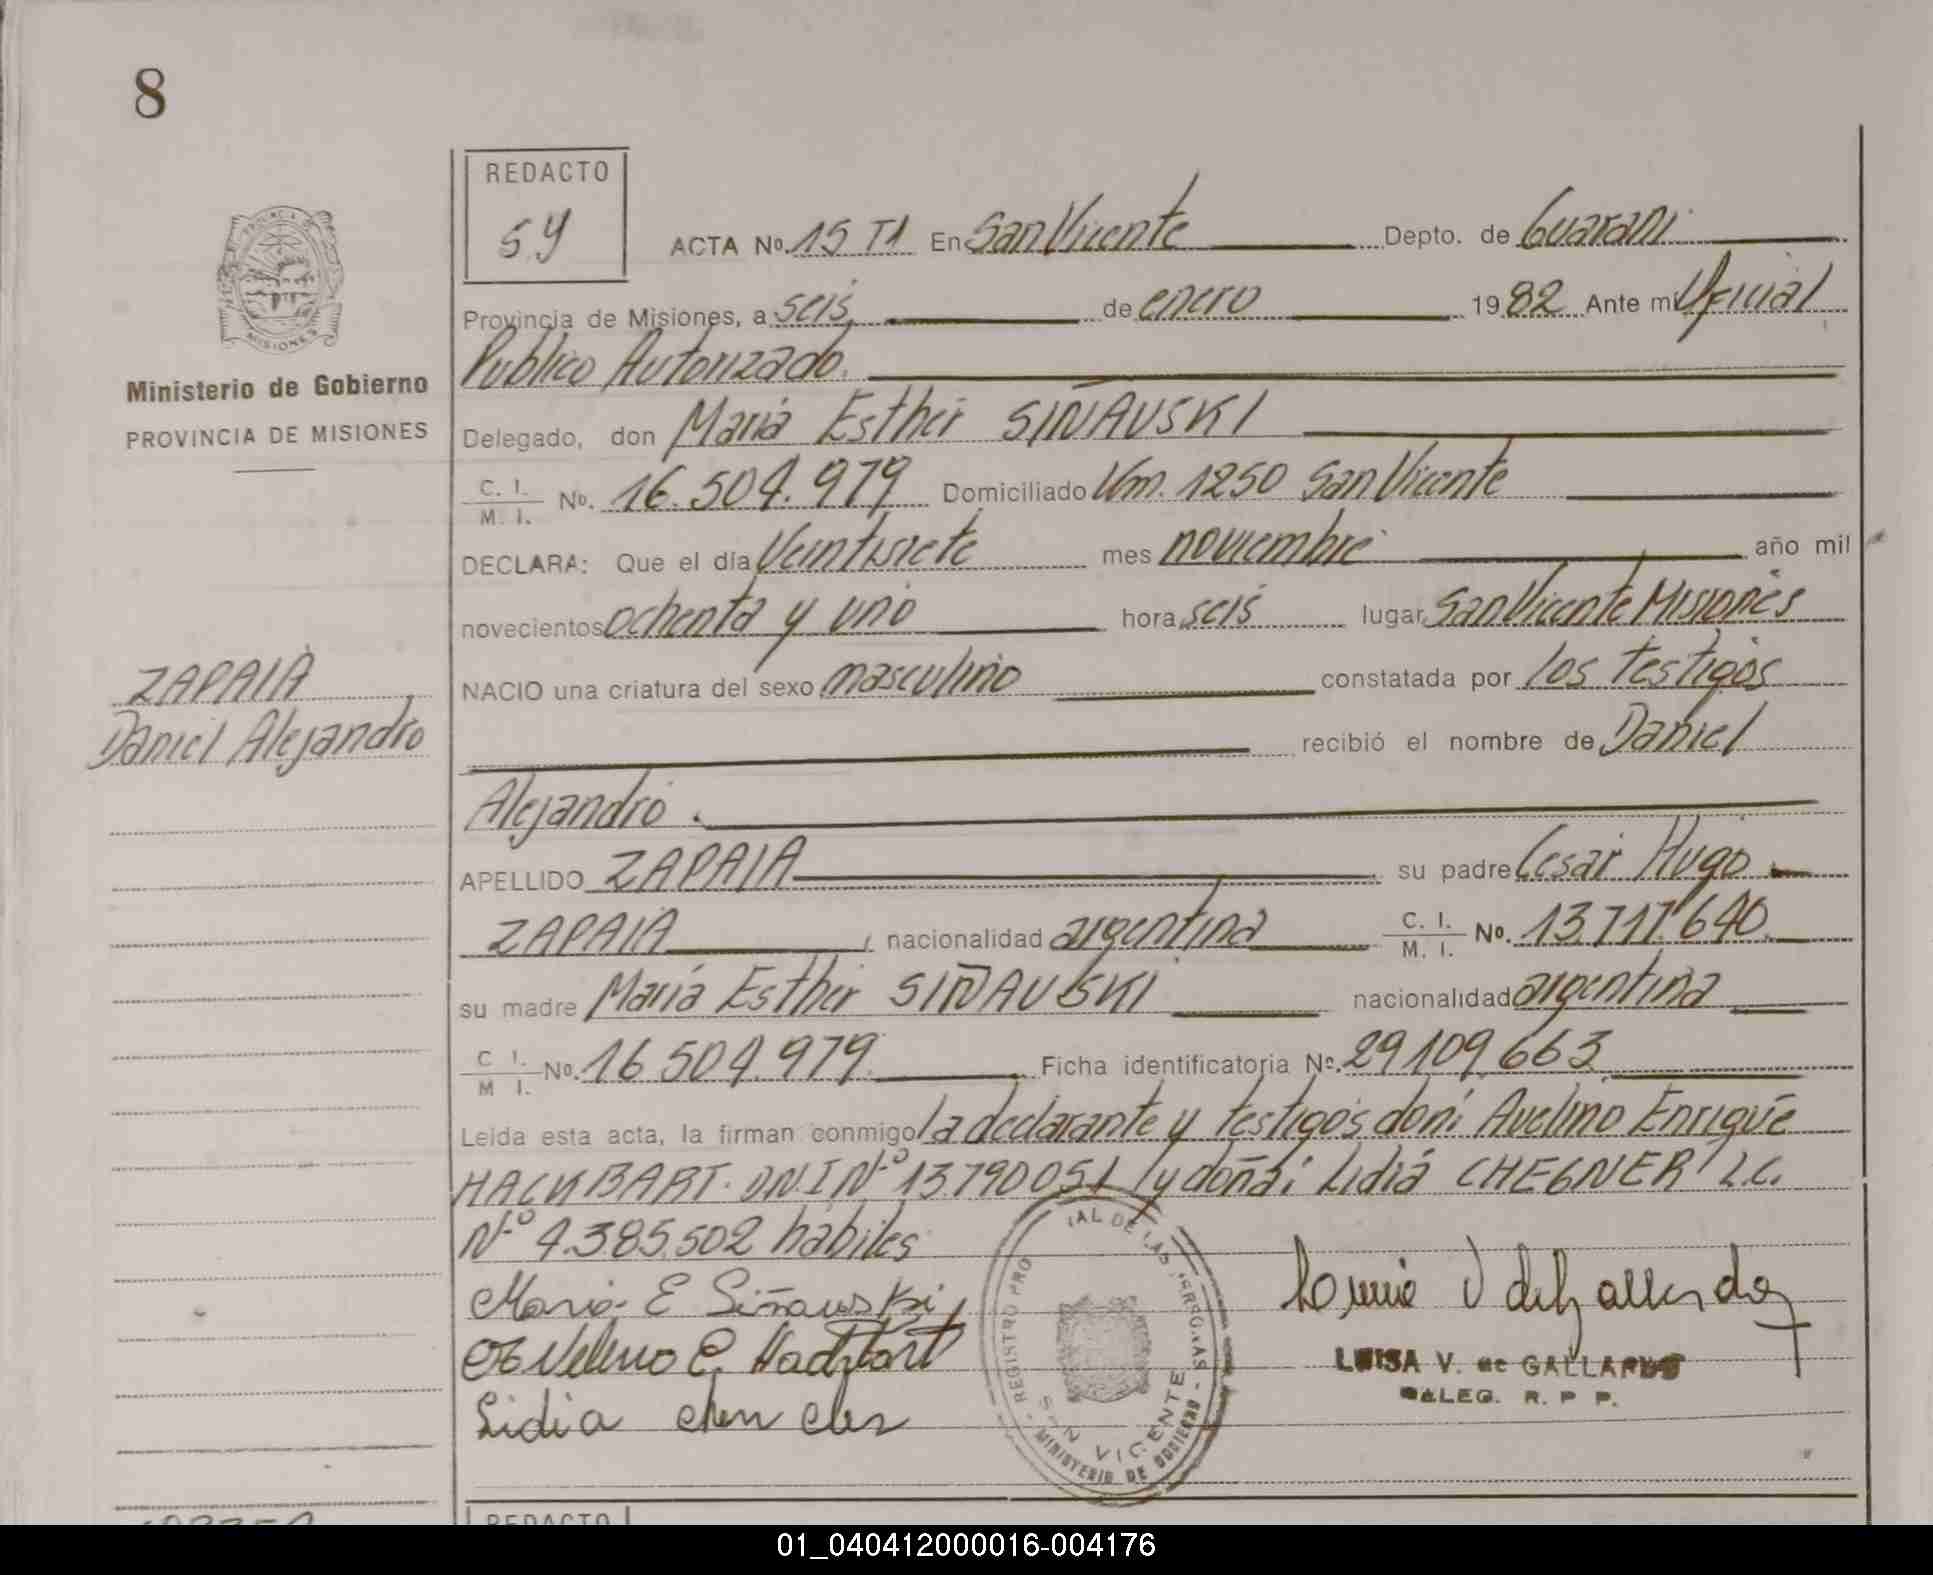 8
REDACTO
5y
ACTA No. 15 T1 En San Vicente Depto. de Guarani
Provincia de Misiones, a seis de enero 1982 Ante mi Oficial
Publico Autorizado.
Ministerio de Gobierno
PROVINCIA DE MISIONES
Delegado, don Maria Esther SIÑAUSKI
C. I. / M. I. No. 16.504.979 Domiciliado Km. 1250 San Vicente
DECLARA: Que el día Veintisiete mes noviembre año mil
novecientos ochenta y uno hora seis lugar San Vicente Misiones
NACIO una criatura del sexo masculino constatada por los testigos
ZAPAIA
Daniel Alejandro
recibió el nombre de Daniel
Alejandro.
APELLIDO ZAPAIA su padre Cesar Hugo
ZAPAIA, nacionalidad argentina C. I. / M. I. No. 13.717.640
su madre Maria Esther SIÑAUSKI nacionalidad argentina
C I. / M I. No. 16.504.979 Ficha identificatoria Nº. 29.109.663
Leida esta acta, la firman conmigo la declarante y testigos don: Avelino Enrique
HACKBART. D.N.I Nº 13.790.051 y doña: Lidia CHEGNER L.C.
Nº 4.385.502 habiles
Maria E Siñauski
Avelino E. Hackbart
Lidia
REGISTRO PRO IAL DE LAS PERSONAS
SAN VICENTE
MINISTERIO DE GOBIERNO
LUISA V. de GALLARDO
DELEG. R. P P.
REDACTO
01_040412000016-004176